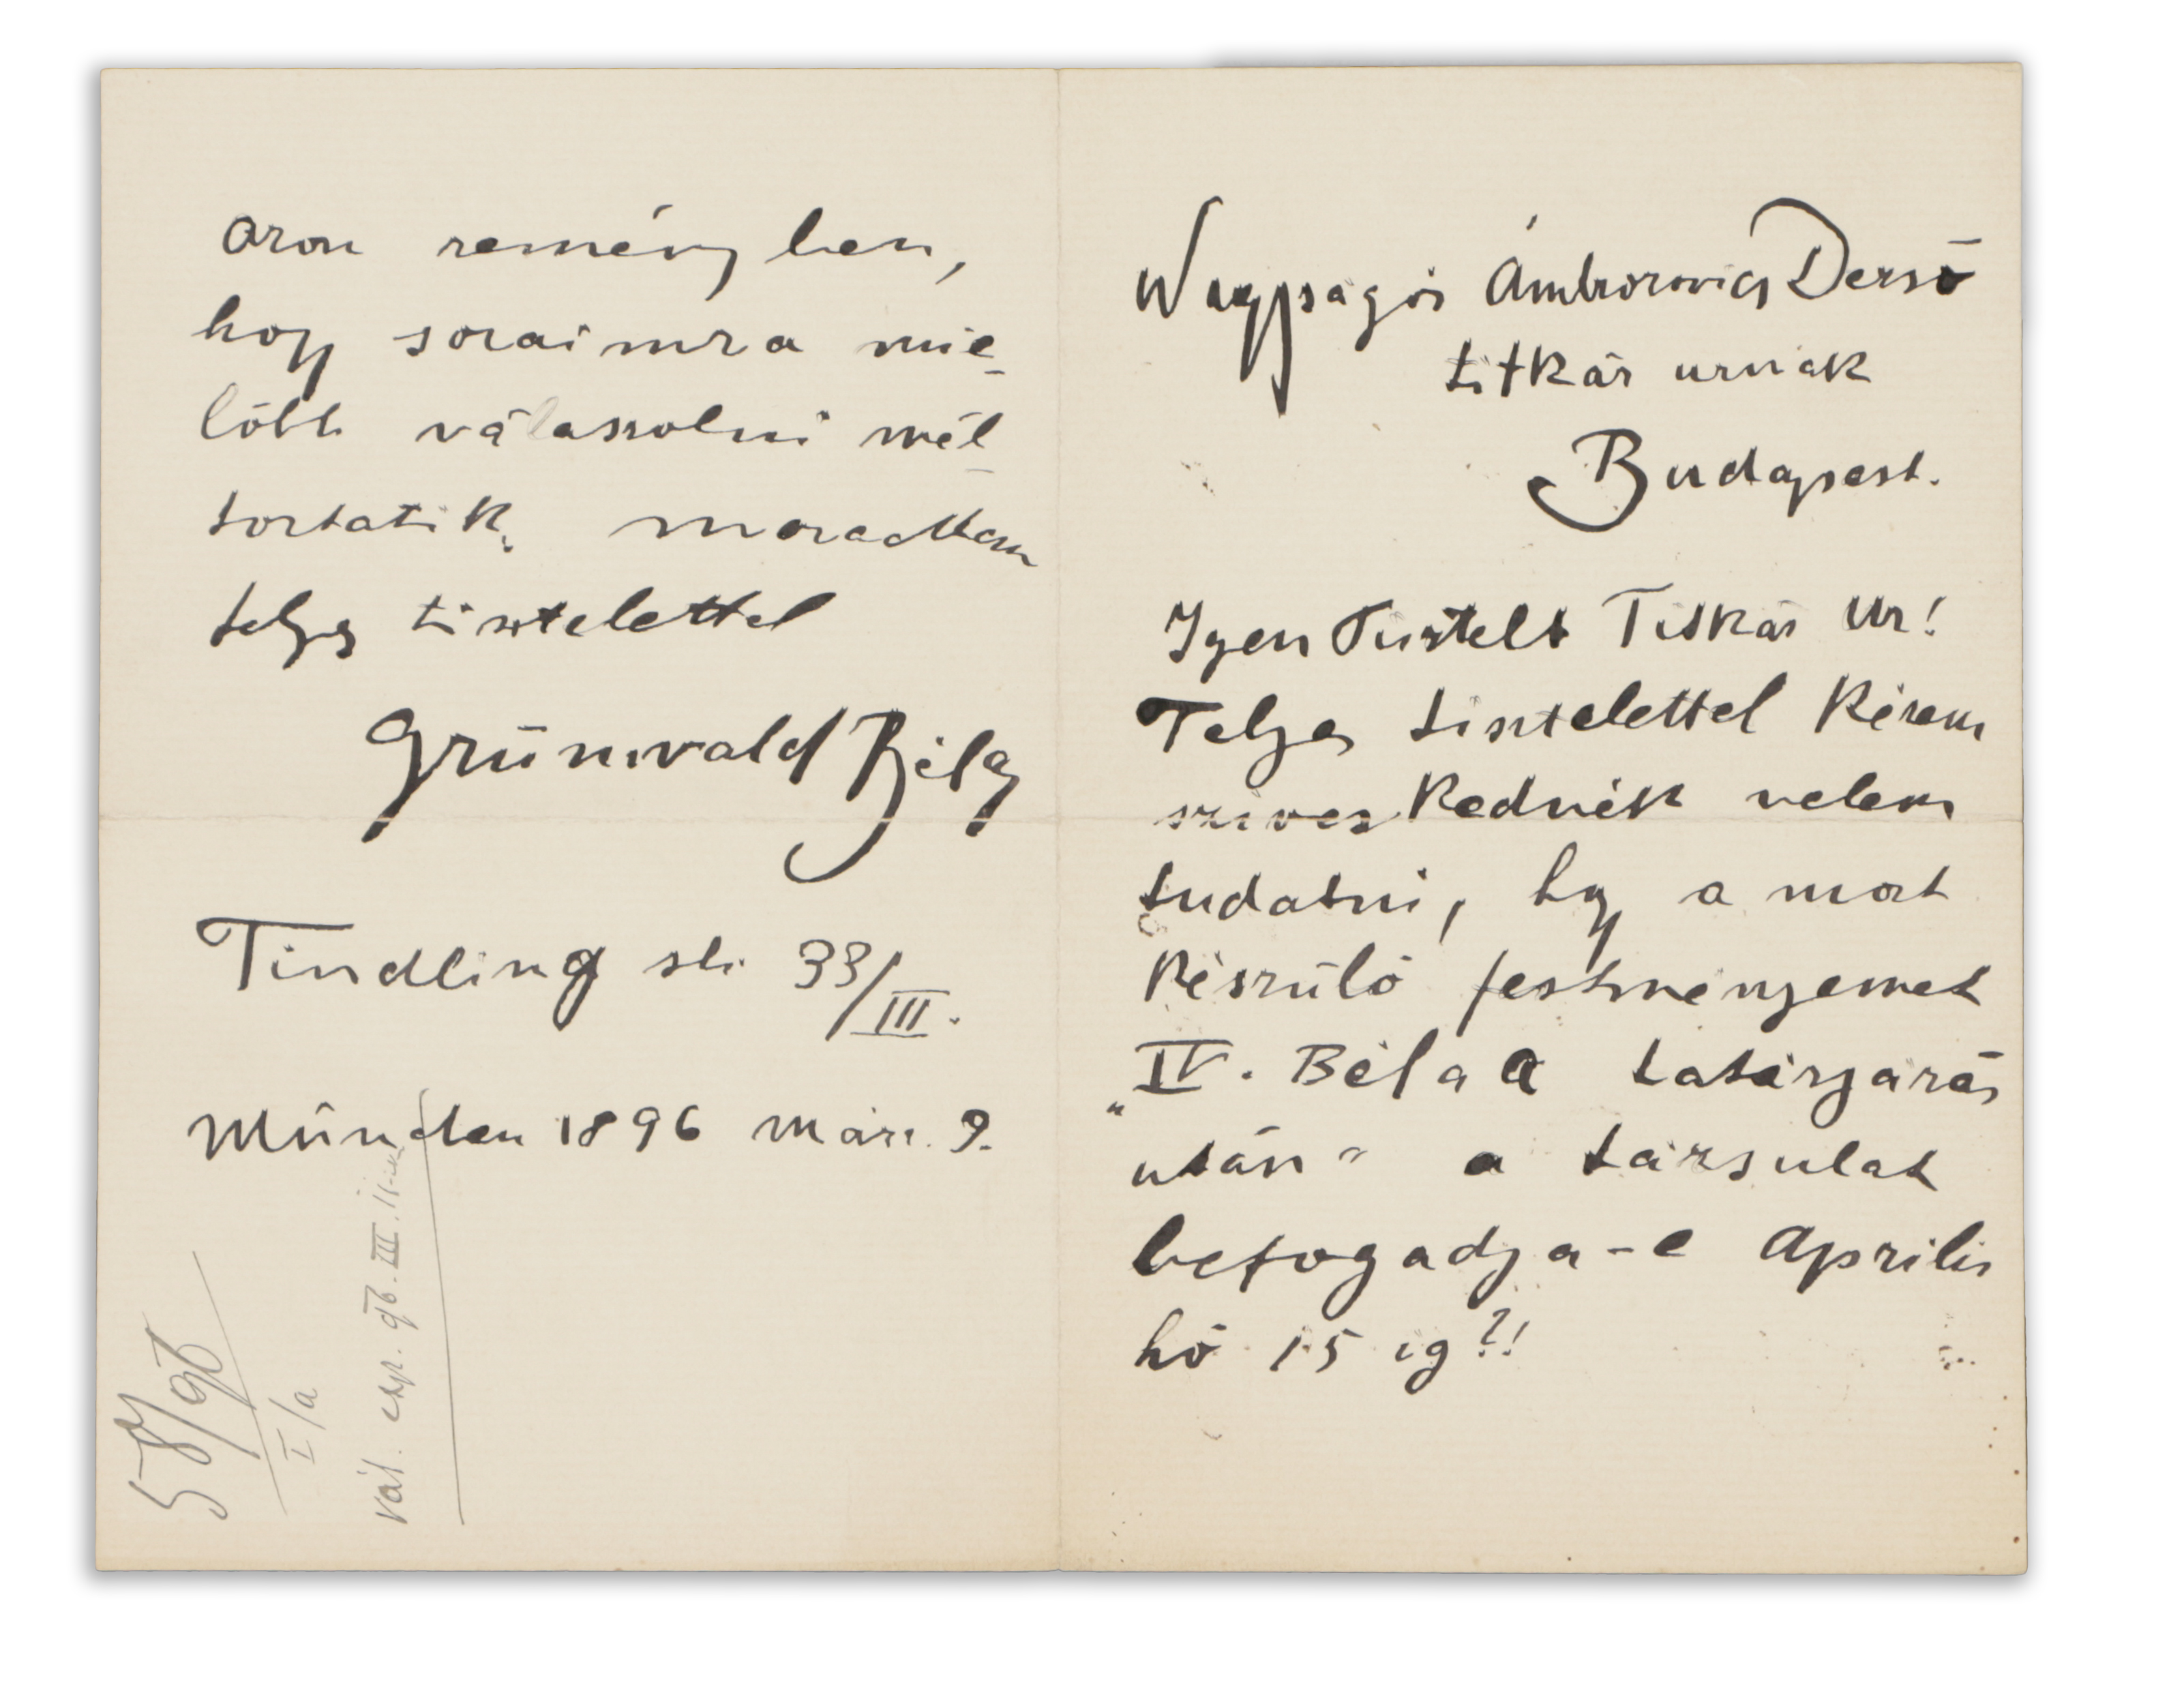 Nagyságos Ambrozovics Dezső
titkár urnak
Budapest.
Igen Tisztelt Titkár Ur!
Teljes tisztelettel kérem
szives kednék velem
tudatni, hgy a most
készülő festményemet
„IV. Béla a tatárjárás
után" a társulat
befogadja-e Aprilis
hó 15 ig?!
Azon reményben,
hogy soraimra mie-
lőbb válaszolni mél-
toztatik, maradtam
teljes tisztelettel
Grünwald Béla
Tindling str. 33/III.
München 1896 márz. 9.
58/96
I/a
vál. exp. 96. III. 11-én